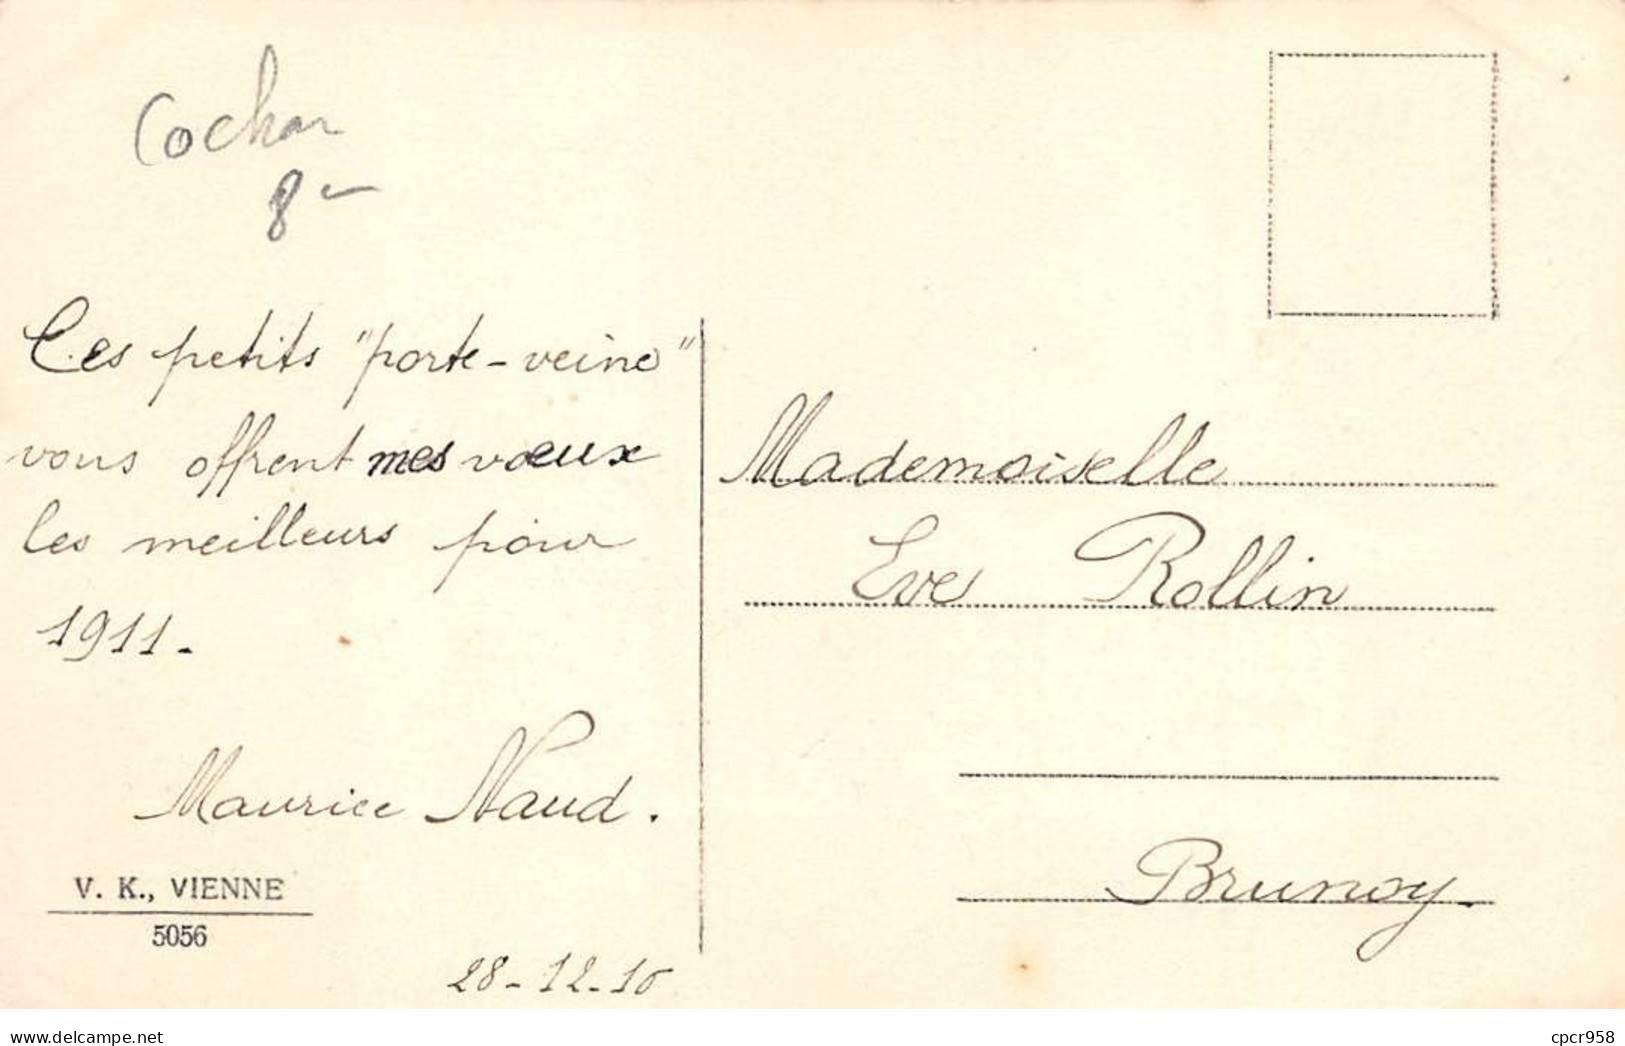 Cochon
8-
Ces petits "porte-veine"
vous offrent mes voeux
les meilleurs pour
1911.
Maurice Naud.
V. K., VIENNE
5056
28-12-10
Mademoiselle
Eve Rollin
Brunoy.
www.delcampe.net
cpcr958